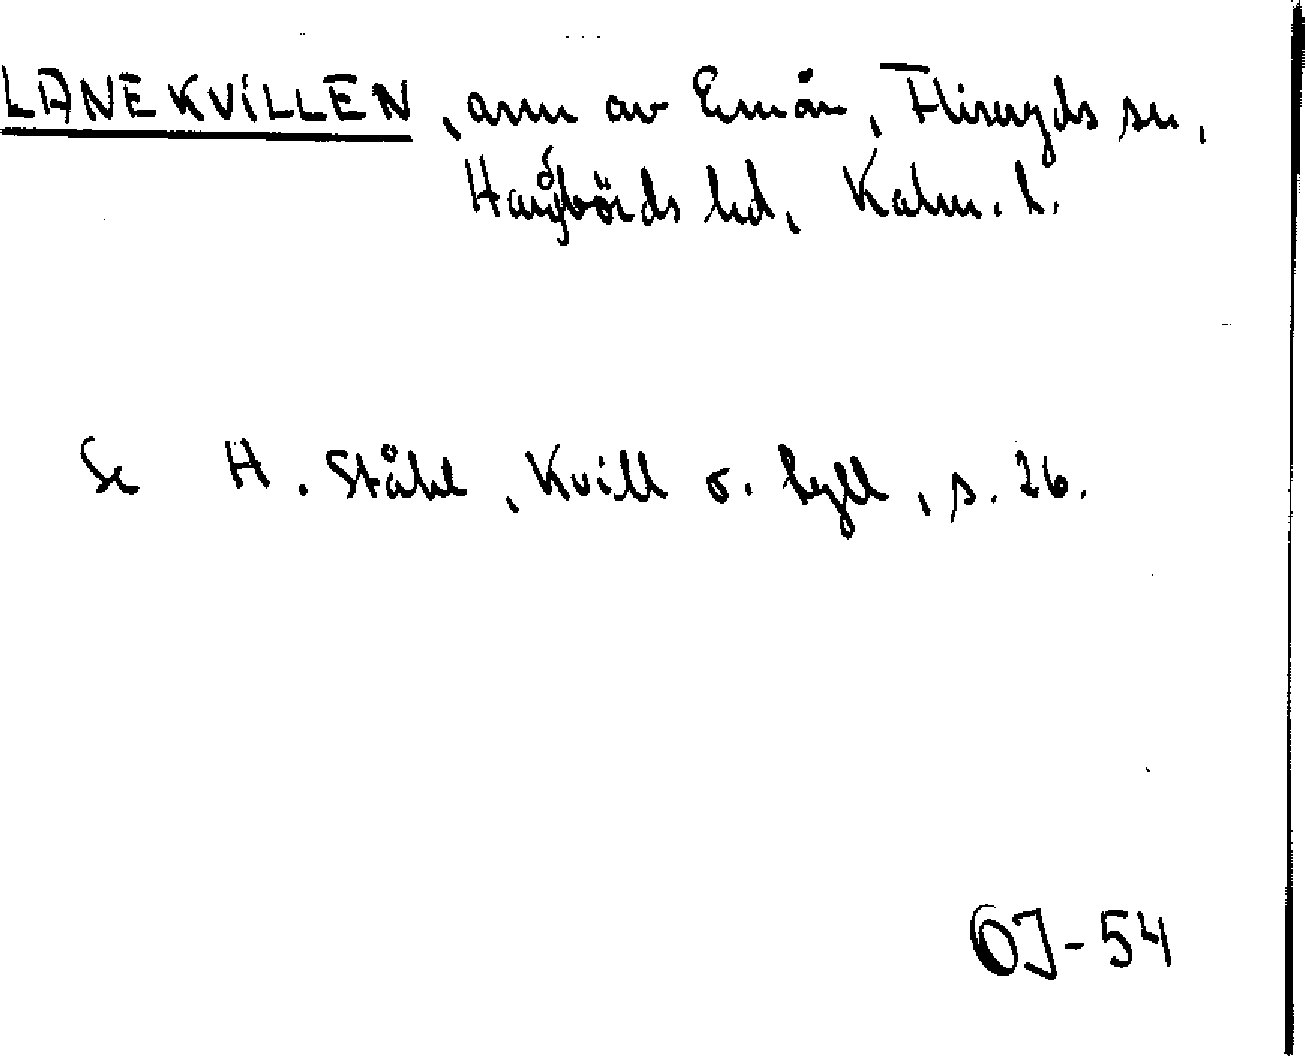 LANEKVILLEN, arm av Emån, Fliseryds sn,
Handbörds hd, Kalm. l.
Se H. Ståhl, Kvill o. hyll, s. 26.
OJ-54